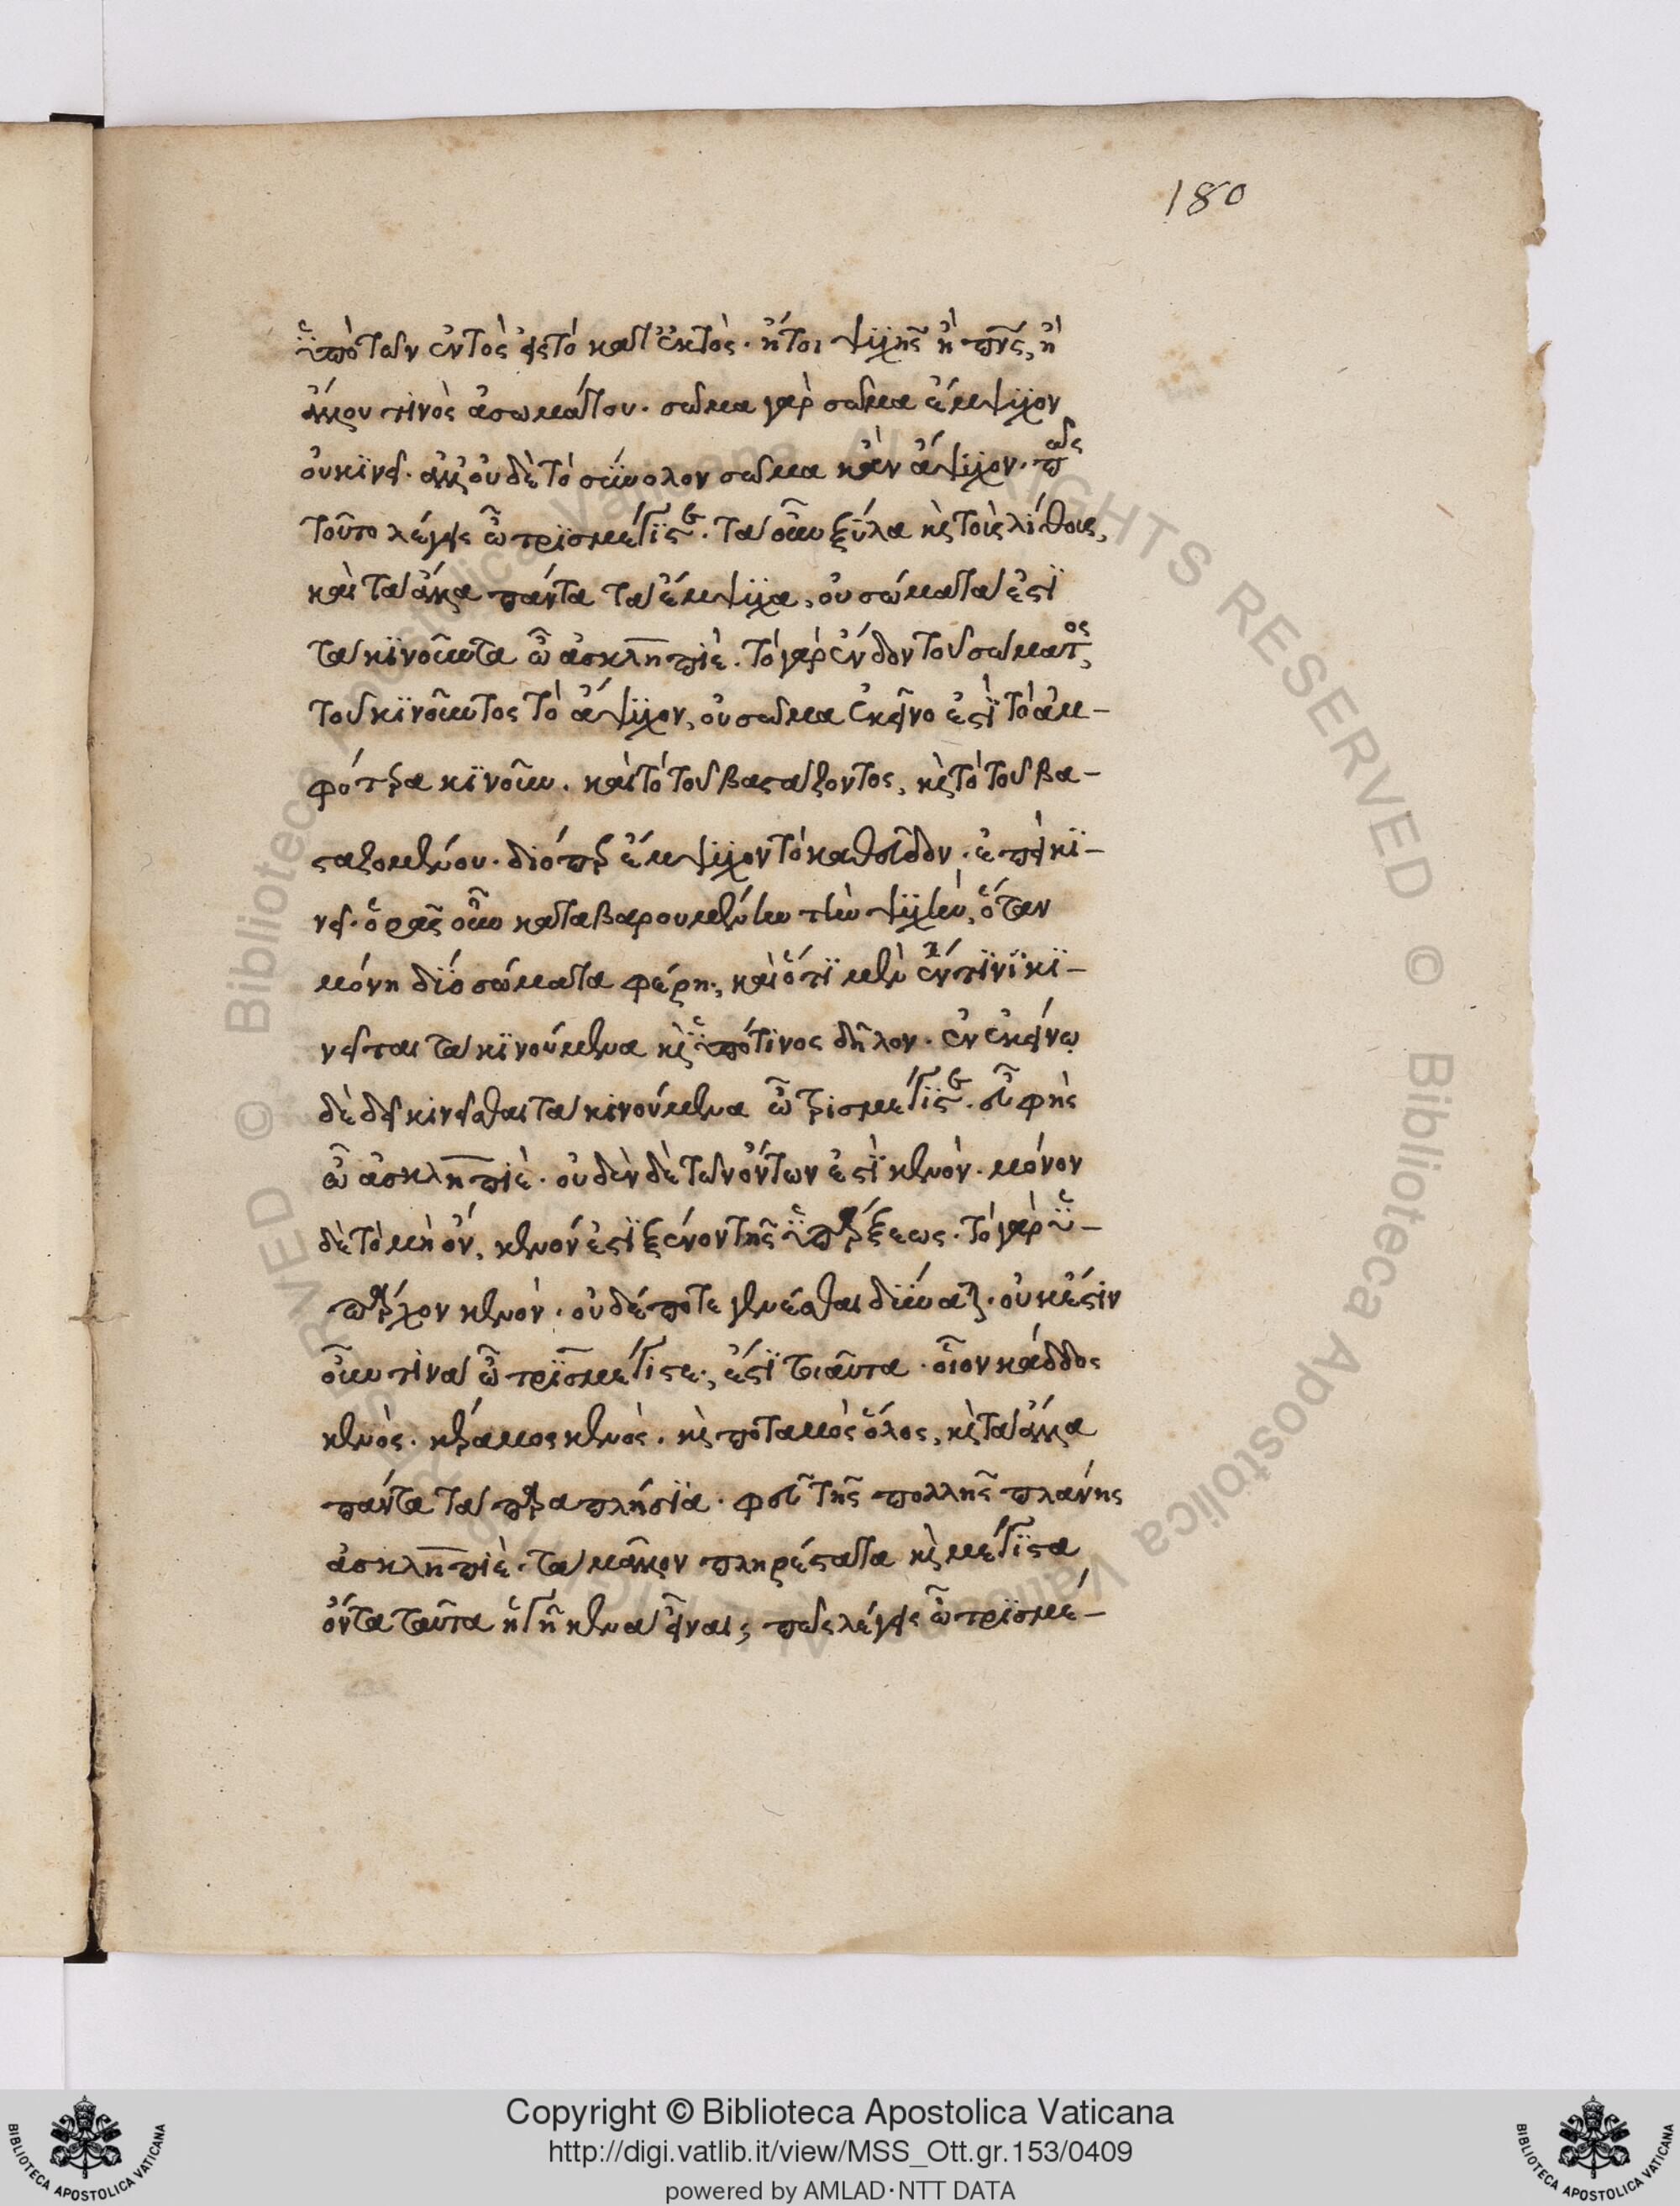 180
ὑπὸ τῶν ἐντὸς εἰς τὸ κατ' ἐκτὸς. ἤτοι ψυχῆς ἢ πνς, ἢ
ἄλλου τινὸς ἀσωμάτου. σῶμα γὰρ σῶμα ἔμψυχον
οὐ κινεῖ. ἀλλ' οὐδὲ τὸ σύνολον σῶμα κἂν ἄψυχον. πῶς
τοῦτο λέγεις ὦ τρισμέγιστε. τὰ οὖν ξύλα κὶ τοὺς λίθους,
καὶ τὰ ἄλλα πάντα τὰ ἔμψυχα, οὐ σώματά ἐστὶ
τὰ κινοῦντα ὦ ἀσκληπιὲ. τὸ γὰρ ἔνδον τοῦ σώματος,
τοῦ κινοῦντος τὸ ἄψυχον, οὐ σῶμα ἐκεῖνο ἐστὶ τὸ ἀμ-
φότερα κινοῦν. καὶ τὸ τοῦ βαστάζοντος, κὶ τὸ τοῦ βα-
σταζομένου. διόπερ ἔμψυχον τὸ καθ' . ἐπεὶ κι-
νεῖ. ὁρᾷς οὖν καταβαρουμένην τὴν ψυχὴν, ὅταν
μόνη δύο σώματα φέρῃ., καὶ ὅτι μὲν ἔν τινι κι-
νεῖται τὰ κινούμενα κὶ ὑπό τινος δῆλον. ἐν ἐκείνῳ
δὲ δεῖ κινεῖσθαι τὰ κινούμενα ὦ τρισμέγιστε. εὖ φὴς
ὦ ἀσκληπιὲ. οὐδὲν δὲ τῶν ὄντων ἐστὶ κενὸν. μόνον
δὲ τὸ μὴ ὄν, κενόν ἐστι ξένον τῆς ὑπάρξεως. τὸ γὰρ ὑ-
πάρχον κενὸν. οὐδέποτε γενέσθαι δύναται. οὐκ ἔστιν
οὖν τινὰ ὦ τρισμέγιστε., ἐστὶ τοιαῦτα. οἷον κάδδος
κενὸς. κέραμος κενὸς. κὶ ποταμὸς ὅλος, κὶ τὰ ἄλλα
πάντα τὰ παραπλήσια. φεῦ τῆς πολλῆς πλάνης
ἀσκληπιὲ. τὰ μᾶλλον πληρέστατα κὶ μέγιστα
ὄντα ταῦτα ἡγῇ κενὰ εἶναι; πῶς λέγεις ὦ τρισμέ-
© Biblioteca Apostolica Vaticana ALL RIGHTS RESERVED
Copyright © Biblioteca Apostolica Vaticana
http://digi.vatlib.it/view/MSS_Ott.gr.153/0409
powered by AMLAD·NTT DATA
BIBLIOTECA APOSTOLICA VATICANA
BIBLIOTECA APOSTOLICA VATICANA